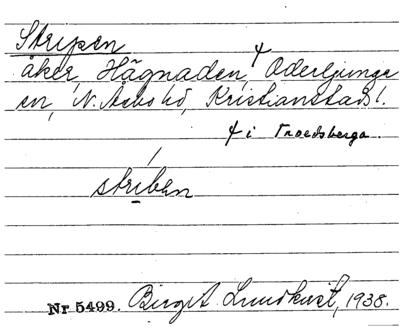 Stripen
åker, Hägnaden, + Oderljunga
sn, N. Åsbo hd, Kristianstads l.
+ i Troedsberga.
striben
Nr 5499. Birgit Lundkvist, 1938.